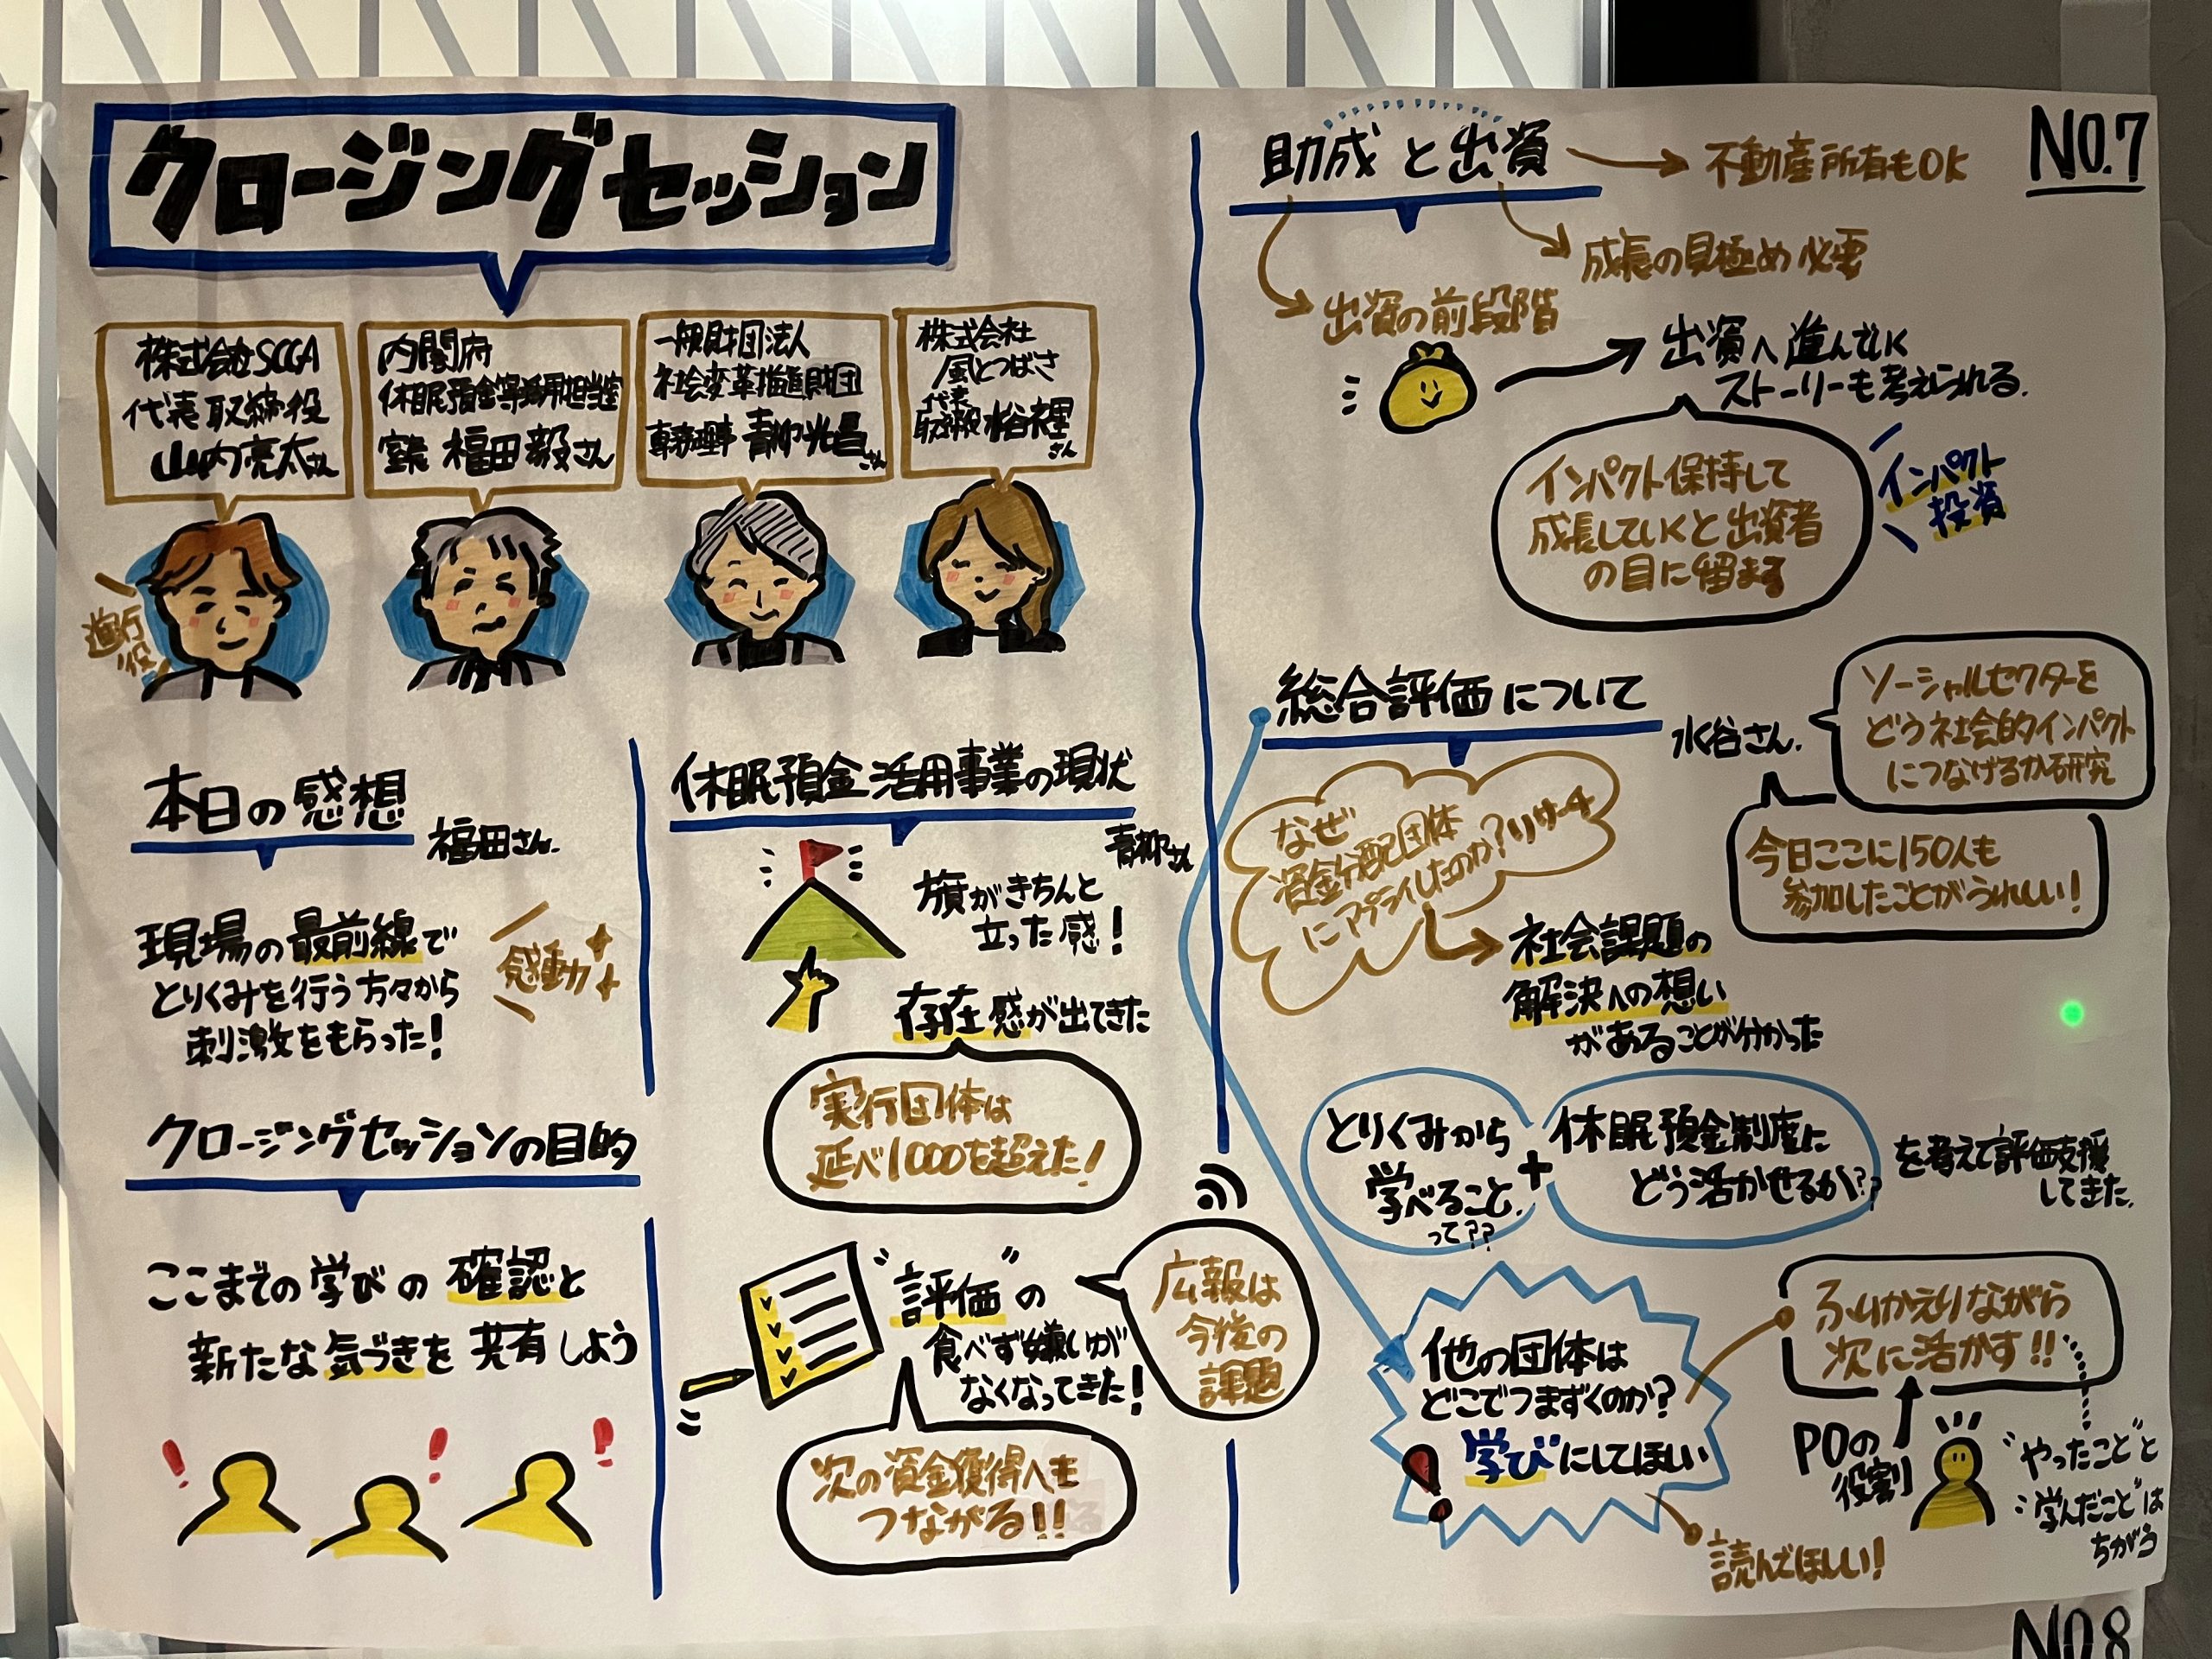 クロージングセッション
株式会社SCGA
代表取締役
山内亮太さん
進行役
内閣府
休眠預金等活用担当室
室長 福田毅さん
一般財団法人
社会変革推進財団
専務理事 青柳光昌さん
株式会社
風とつばさ
代表
取締役 水谷衣里さん
本日の感想
福田さん
現場の最前線で
とりくみを行う方々から
刺激をもらった!
感動
クロージングセッションの目的
ここまでの学びの確認と
新たな気づきを共有しよう
休眠預金活用事業の現状
青柳さん
旗がきちんと
立った感!
存在感が出てきた
実行団体は
延べ1000を超えた!
“評価”の
食べず嫌いが
なくなってきた!
広報は
今後の
課題
次の資金獲得へも
つながる!!
NO.7
助成と出資
不動産所有もOK
成長の見極め必要
出資の前段階
出資へ進んでいく
ストーリーも考えられる.
インパクト保持して
成長していくと出資者
の目に留まる
インパクト
投資
総合評価について
水谷さん.
ソーシャルセクターを
どう社会的インパクト
につなげるか研究
今日ここに150人も
参加したことがうれしい!
なぜ
資金分配団体
にアプライしたのか?リサーチ
社会課題の
解決への想い
があることが分かった
とりくみから
学べること
って??
+
休眠預金制度に
どう活かせるか??
を考えて評価支援
してきた.
他の団体は
どこでつまずくのか?
学びにしてほしい
ふりかえりながら
次に活かす!!
POの
役割
“やったこと”と
“学んだこと”は
ちがう
読んでほしい!
NO.8